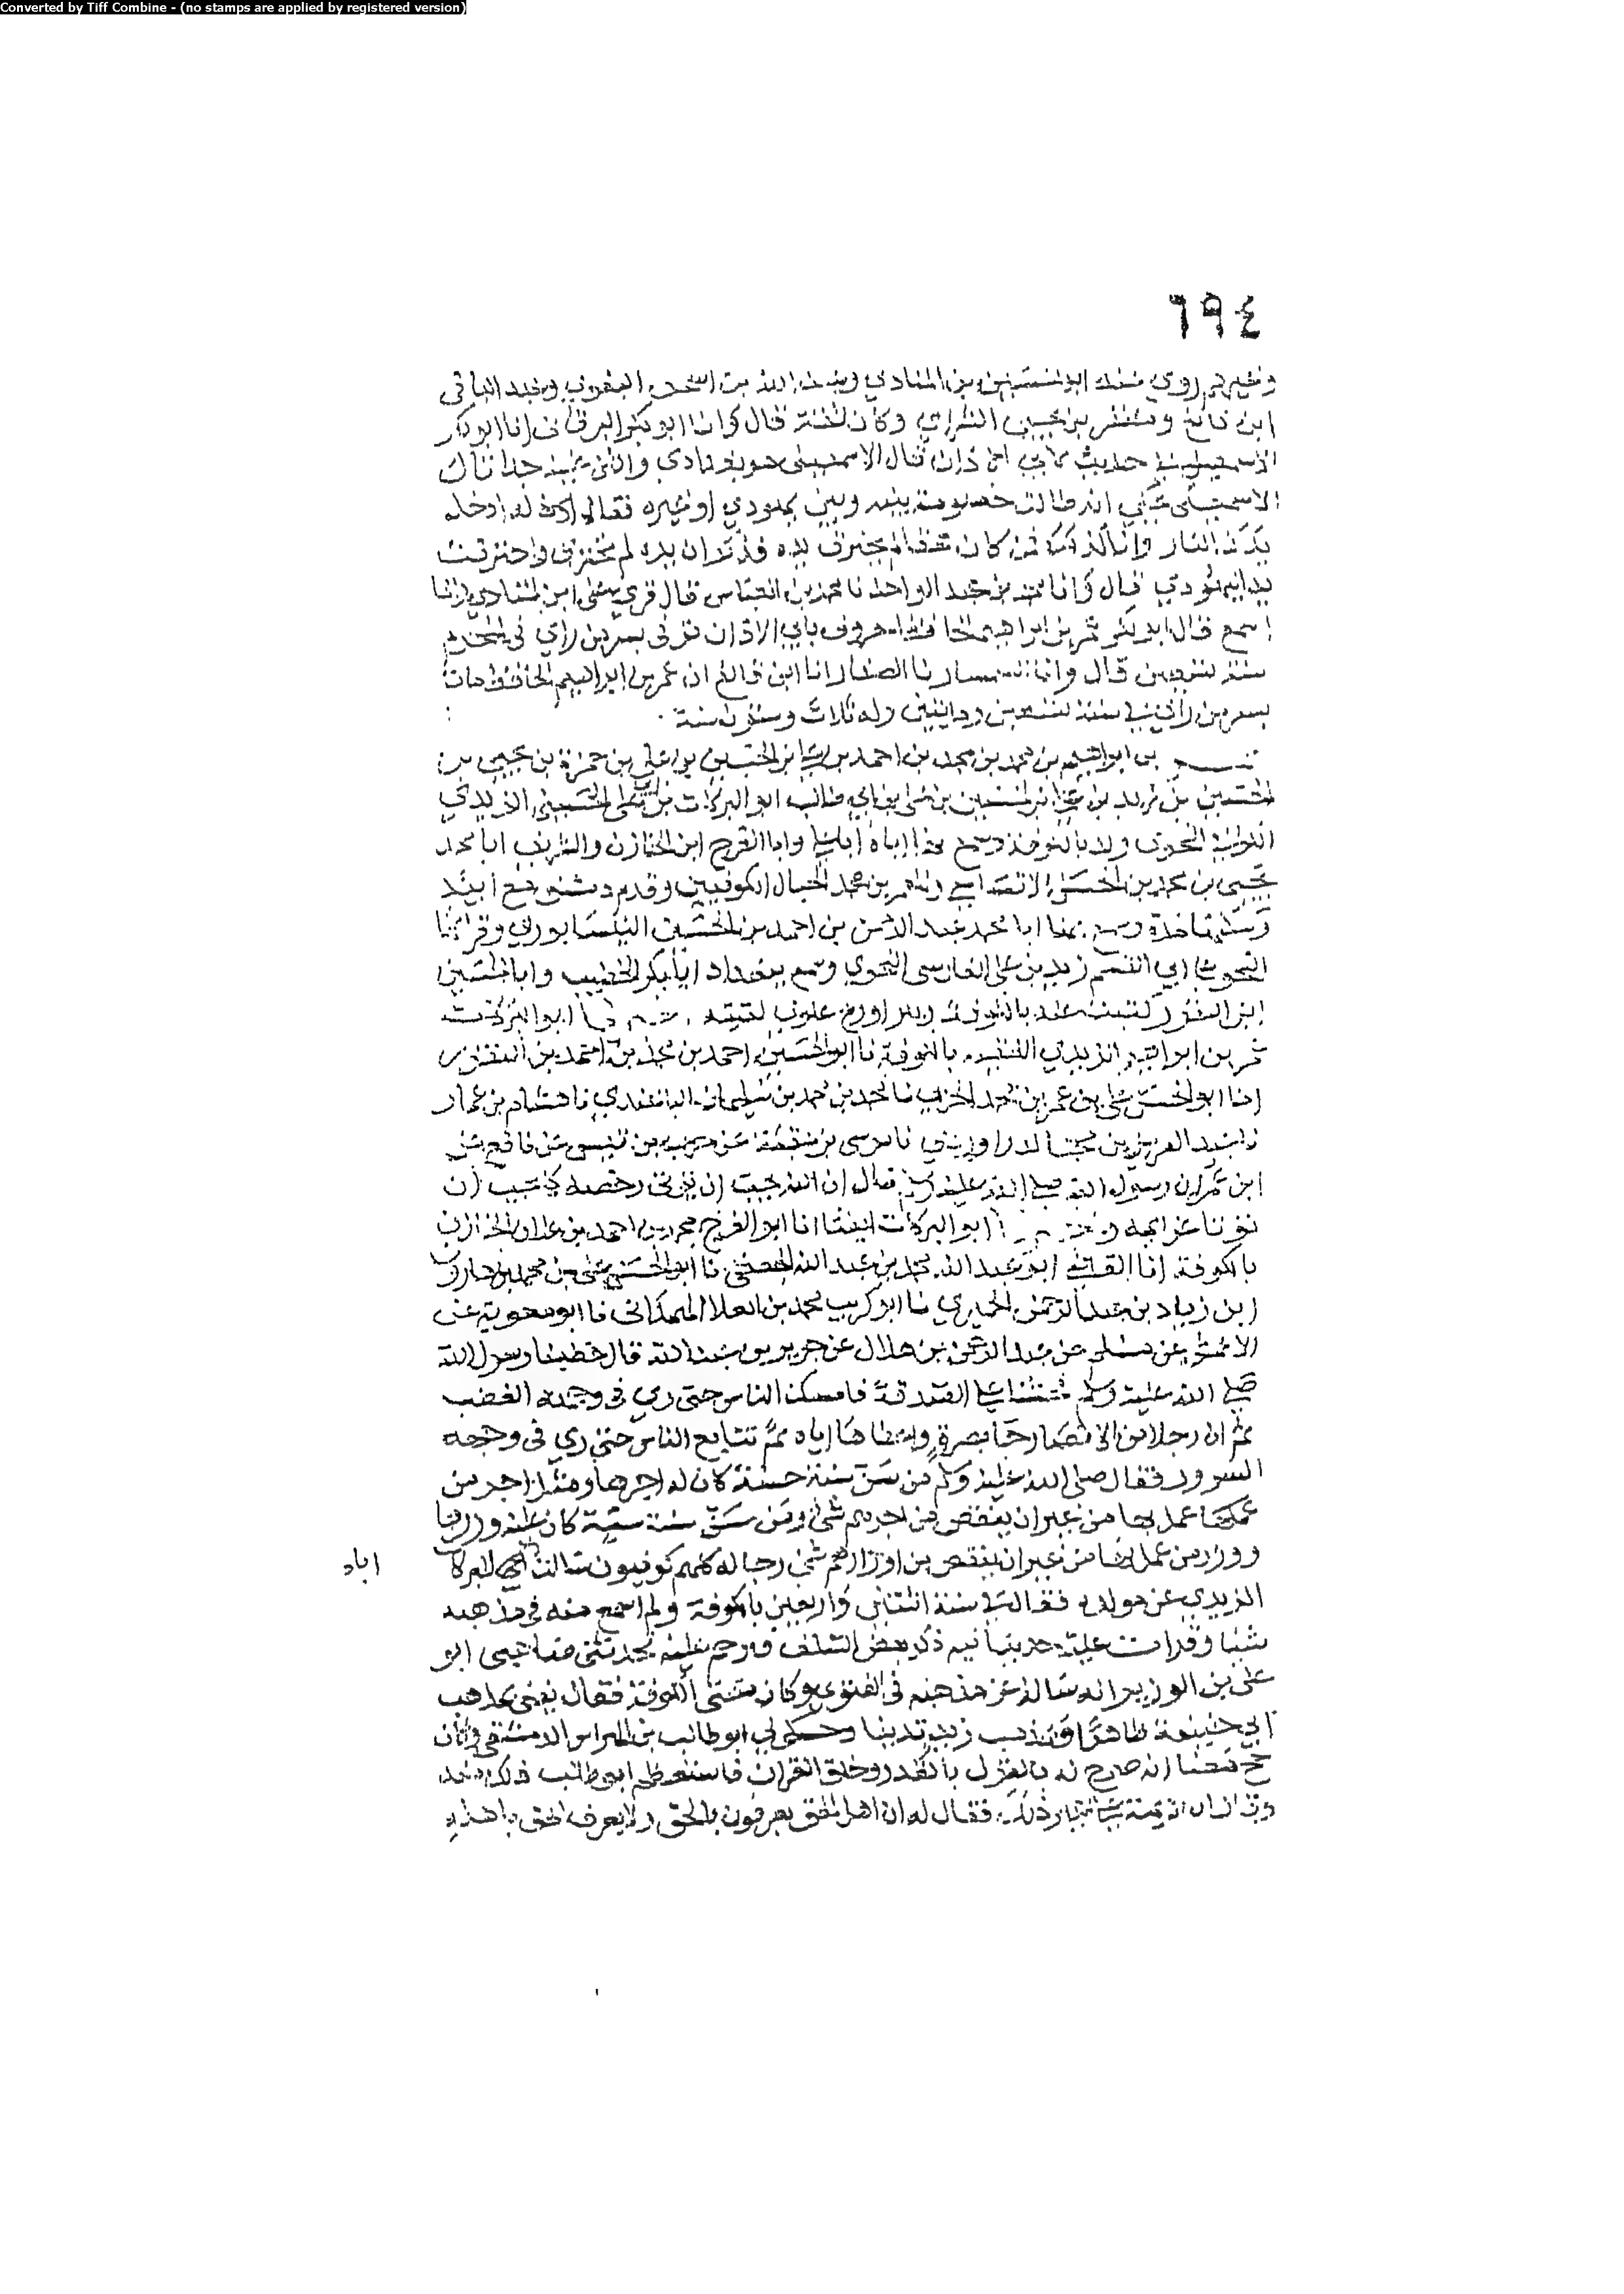 Converted by Tiff Combine - (no stamps are applied by registered version)
٦٩٤
وغيرهم روى عنه ابو الحسين بن المنادي وعبد الله بن اسحق وعبد الباقي
ابن قانع ومظفر بن يحيى الشرابي وكان ثقة قال وانا ابو بكر البرقاني انا ابو بكر
الاسمعيلي حديث ابي اذان قال الاسمعيلي هو بغدادي جدا قال
الاسمعيلي حكي انه طالت خصومة بينه وبين يهودي او غيره فقال له ادخل
يدك النار وانا كذلك فمن كان محقا لم يحترق يده فذكر ان يده لم تحترق واحترقت
يد اليهودي قال وانا محمد بن عبد الواحد نا محمد بن العباس قال قري على ابن المنادي وانا
اسمع قال ابو بكر عمر بن ابراهيم الحافظ المعروف بابي الاذان توفى بسر من راي في
سنة تسعين قال وانا السمسار نا الصفار انا ابن قانع ان عمر بن ابراهيم الحافظ مات
بسر من راي في سنة تسعين ومايتين وله ثلاث وستون سنة
عمر بن ابراهيم بن محمد بن محمد بن احمد بن علي بن الحسين بن علي بن حمزة بن يحيى بن
الحسين بن زيد بن علي بن الحسين بن علي بن ابي طالب ابو البركات بن ابي علي الحسيني الزيدي
الكوفي النحوي ولد بالكوفة وسمع بها اباه ابا علي وابا الفرج ابن الخازن والشريف ابا محمد
يحيى بن محمد بن الحسن الاقساسي ومحمد الحبال الكوفيين وقدم دمشق مع ابيه
وسكنها مدة وسمع بها ابا محمد عبد الرحمن بن احمد بن الحسين النيسابوري وقرا بها
النحو على ابي القسم زيد بن علي الفارسي النحوي وسمع ببغداد ابا بكر الخطيب وابا الحسين
ابن النقور كتبت عنه بالكوفة وهو اورع علوي لقيته ابو البركات
عمر بن ابراهيم الزيدي بالكوفة نا ابو الحسين احمد بن محمد بن احمد بن النقور
انا ابو الحسن علي بن عمر بن محمد الحربي نا محمد بن محمد بن سليمان الباغندي نا هشام بن عمار
نا عبد العزيز بن محمد الدراوردي نا موسى بن عقبة عن حرب بن قيس عن نافع عن
ابن عمر ان رسول الله صلى الله عليه وسلم قال ان الله يحب ان توتى رخصه كما يحب ان
توتا عزايمه ابو البركات ايضا انا ابو الفرج محمد بن احمد بن علان الخازن
بالكوفة انا القاضي ابو عبد الله محمد بن عبد الله الجعفي نا ابو الحسن علي بن محمد بن هارون
ابن زياد بن عبد الرحمن الحميري نا ابو كريب محمد بن العلا الهمداني نا ابو معوية عن
الاعمش عن مسلم عن عبد الرحمن بن هلال عن جرير بن عبد الله قال خطبنا رسول الله
صلى الله عليه وسلم فحثنا على الصدقة فامسك الناس حتى ري في وجهه الغضب
ثم ان رجلا من الانصار جا بصرة واعطاها اياه ثم تتابع الناس حتى ري في وجهه
السرور فقال صلى الله عليه وسلم من سن سنة حسنة كان له اجرها ومثل اجر من
عمل بها من غير ان ينقص من اجرهم شي ومن سن سنة سيئة كان عليه وزرها
ووزر من عمل بها من غير ان ينقص من اوزارهم شي رجاله كلهم كوفيون سالت ابا البركات
اباه
الزيدي عن مولده فقال في سنة اثنتين واربعين بالكوفة ولم اسمع منه في مذهبه
شيئا وقرات عليه حديثا فيه ذكر بعض السلف فترحم عليه وحدثني صاحبي ابو
علي بن الوزير انه ساله عن مذهبه في الفتوى وكان مفتي الكوفة فقال نفتي بمذهب
ابي حنيفة ظاهرا وبمذهب زيد تدينا وحكى لي ابو طالب بن الهراس الدمشقي وكان
حج معنا انه صرح له بالقول بالقدر وخلق القران فاستعظم ابو طالب ذلك منه
فقال له ان اهل الحق يعرفون بالحق ولا يعرف الحق باهله